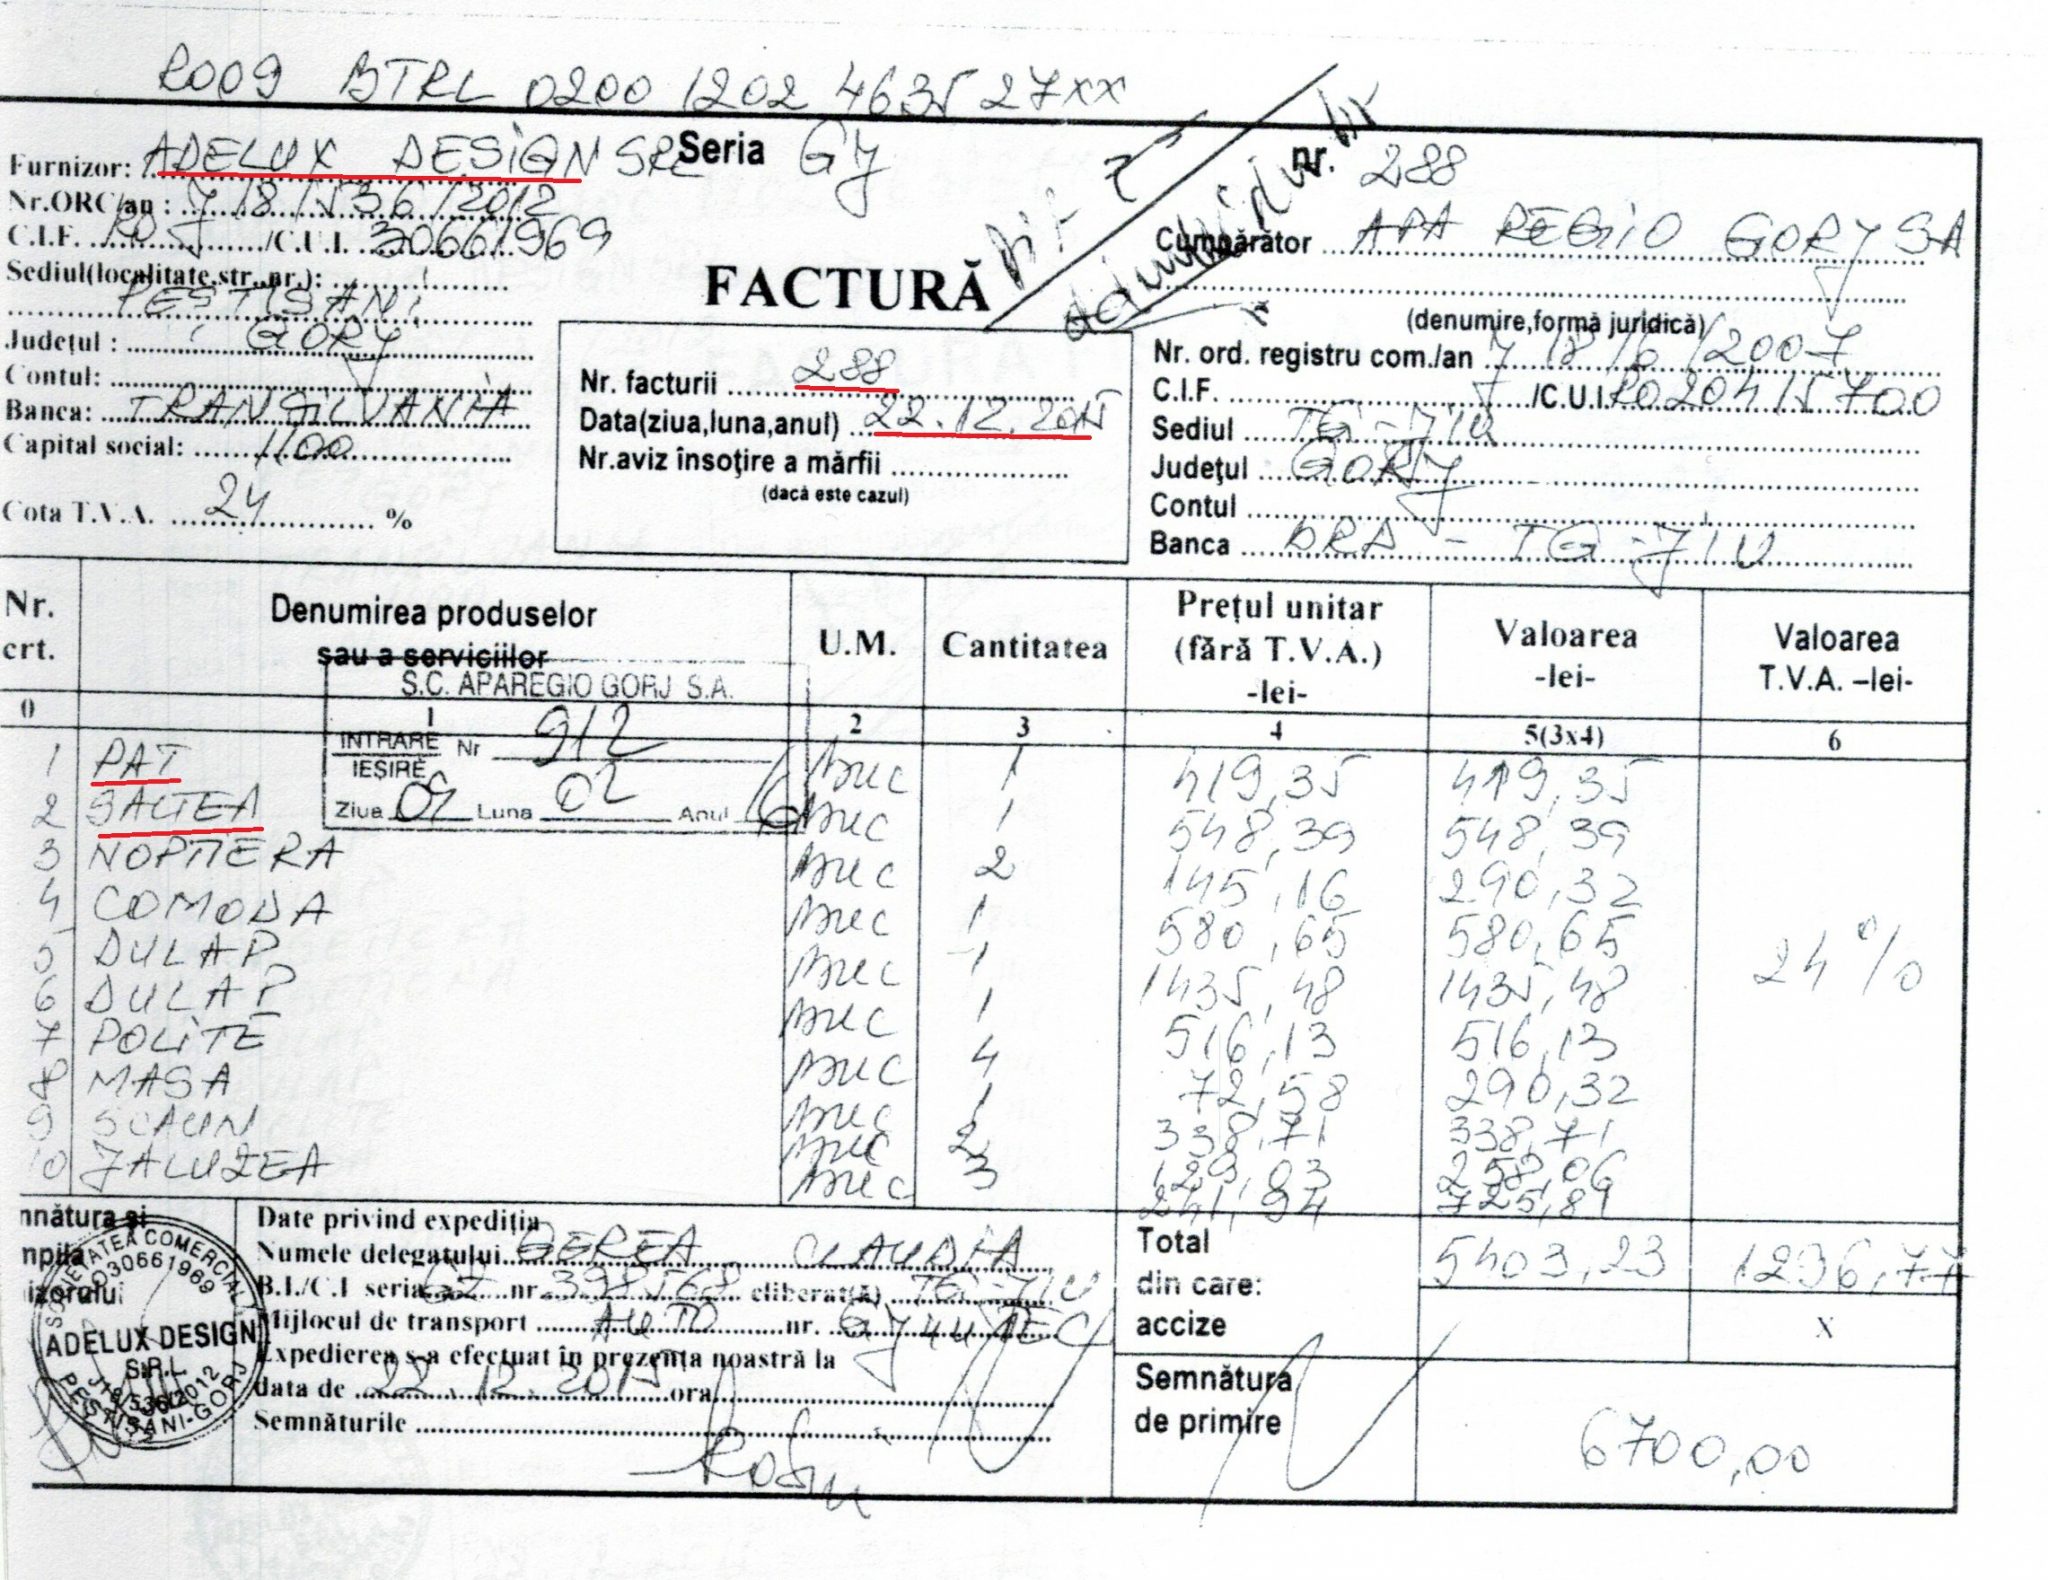 RO09 BTRL 0200 1202 4635 27xx
Furnizor: ADELUX DESIGN SRL Seria GJ nr. 288
Nr.ORC/an : J 18/536/2012
C.I.F. RO /C.U.I. 30661969
Cumpărător APA REGIO GORJ SA
Sediul(localitate,str.,nr.):
PESTISANI
FACTURĂ
(denumire,formă juridică)
Județul : GORJ
Nr. ord. registru com./an J 18/6/2007
Contul:
Nr. facturii 288
C.I.F. /C.U.I. RO20415700
Banca: TRANSILVANIA
Data(ziua,luna,anul) 22.12.2015
Sediul TG-JIU
Capital social: 1100
Nr.aviz însoțire a mărfii
Județul GORJ
(dacă este cazul)
Contul
Cota T.V.A. 24 %
Banca TG-JIU
Nr. crt. Denumirea produselor sau a serviciilor U.M. Cantitatea Prețul unitar (fără T.V.A.) -lei- Valoarea -lei- Valoarea T.V.A. –lei-
0 1 2 3 4 5(3x4) 6
S.C. APAREGIO GORJ S.A.
INTRARE Nr 912
IEȘIRE
Ziua 09 Luna 02 Anul 16
1 PAT buc 1 419,35 419,35
2 SALTEA buc 1 548,39 548,39
3 NOPTIERA buc 2 145,16 290,32
4 COMODA buc 1 580,65 580,65
5 DULAP buc 1 1435,48 1435,48
24%
6 DULAP buc 1 516,13 516,13
7 POLITE buc 4 72,58 290,32
8 MASA buc 1 338,71 338,71
9 SCAUN buc 2 129,03 258,06
10 JALUZEA buc 3 241,94 725,81
Date privind expediția
Numele delegatului GEREA CLAUDIA
B.I./C.I seria GZ nr. 398568 eliberat(ă) TG-JIU
Mijlocul de transport AUTO nr.
Expedierea s-a efectuat în prezența noastră la
data de 22.12.2015 ora
Semnăturile
Total 5403,23 1296,77
din care:
accize X
Semnătura
de primire
6700,00
SOCIETATEA COMERCIALĂ
RO30661969
ADELUX DESIGN
S.R.L.
J18/536/2012
PEȘTIȘANI-GORJ